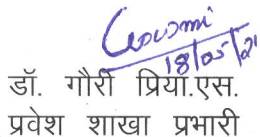 18/05/21
डॉ. गौरी प्रिया.एस.
प्रवेश शाखा प्रभारी